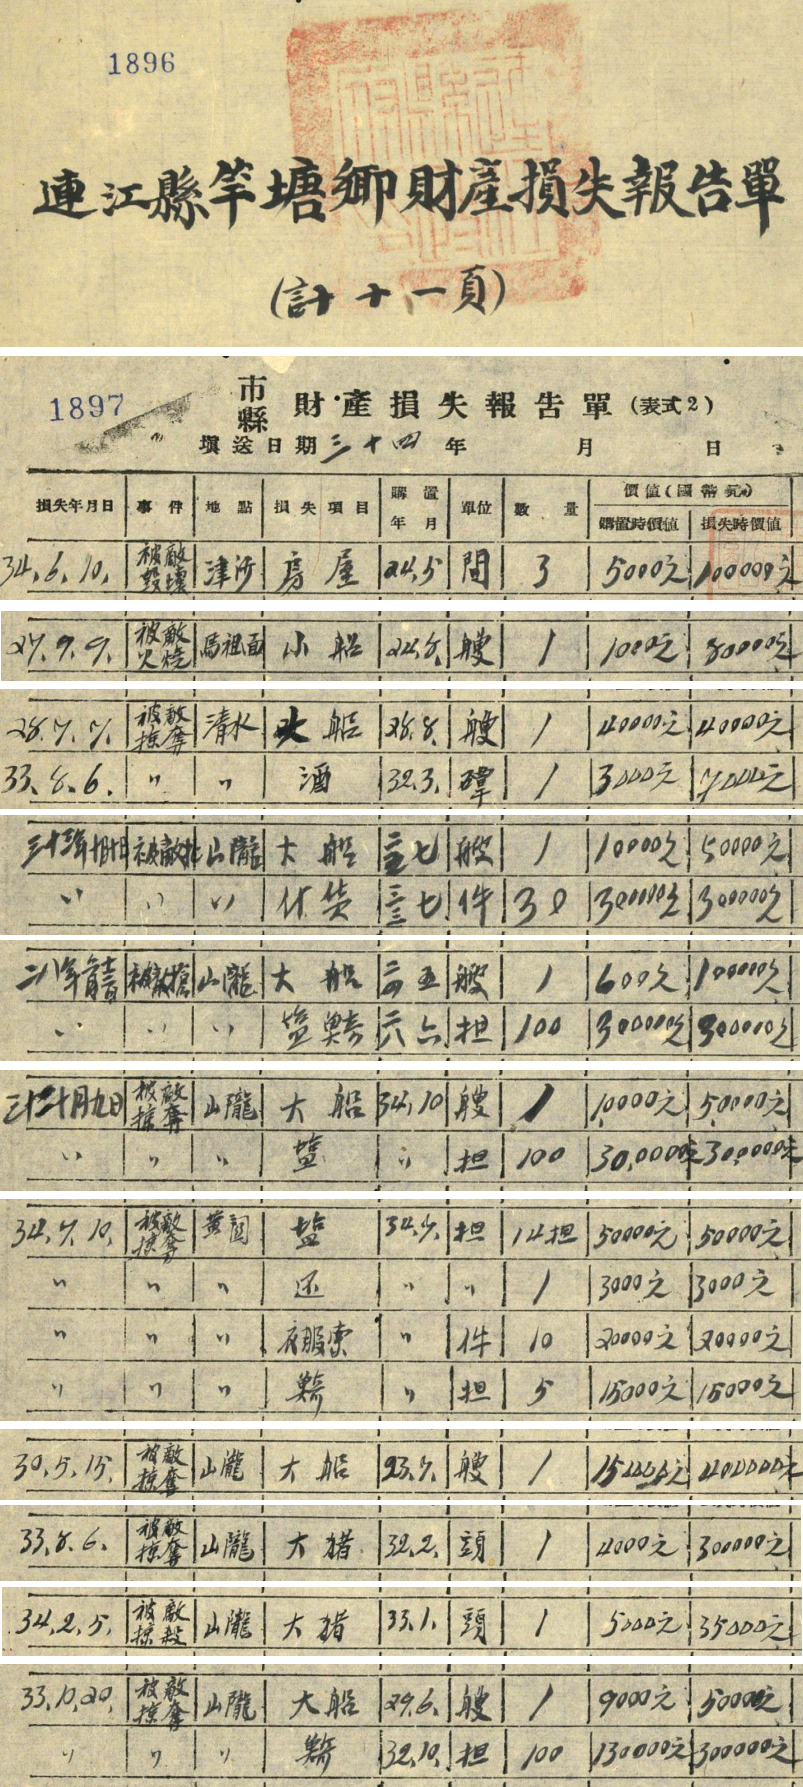 1896
連江縣竿塘鄉財產損失報告單
(計十一頁)
1897
市縣 財產損失報告單 (表式2)
填送日期 三十四 年 月 日
損失年月日 事件 地點 損失項目 購置年月 單位 數量 價值(國幣元)
購置時價值 損失時價值
34.6.10. 被敵毀壞 津沙 房屋 24.5 間 3 5000元 100000元
27.9.9. 被敵火燒 馬祖 小船 24.8. 艘 1 1000元 80000元
28.7.7. 被敵掠奪 清水 大船 28.8. 艘 1 40000元 40000元
33.8.6. 〃 〃 酒 32.3. 1 3000元 7000元
被敵 山隴 大船 艘 1 10000元 50000元
〃 〃 〃 什貨 件 30 300000元 300000元
被敵搶 山隴 大船 艘 1 600元 100000元
〃 〃 〃 塩 六 担 100 300000元 300000元
十月九日 被敵掠奪 山隴 大船 34.10 艘 1 10000元 50000元
〃 〃 〃 塩 〃 担 100 30,0000 30,0000
34.7.10. 被敵掠奪 塩 34.7. 担 14担 50000元 50000元
〃 〃 〃 〃 〃 1 3000元 3000元
〃 〃 〃 衣服 〃 件 10 20000元 20000元
〃 〃 〃 〃 担 5 15000元 15000元
30.5.15. 被敵掠奪 山隴 大船 23.7. 艘 1 150000元 400000元
33.8.6. 被敵掠奪 山隴 大猪 32.2. 頭 1 4000元 300000元
34.2.5. 被敵掠殺 山隴 大猪 33.1. 頭 1 5000元 35000元
33.10.20. 被敵掠奪 山隴 大船 29.6. 艘 1 9000元 50000元
〃 〃 〃 32.10. 担 100 130000元 300000元